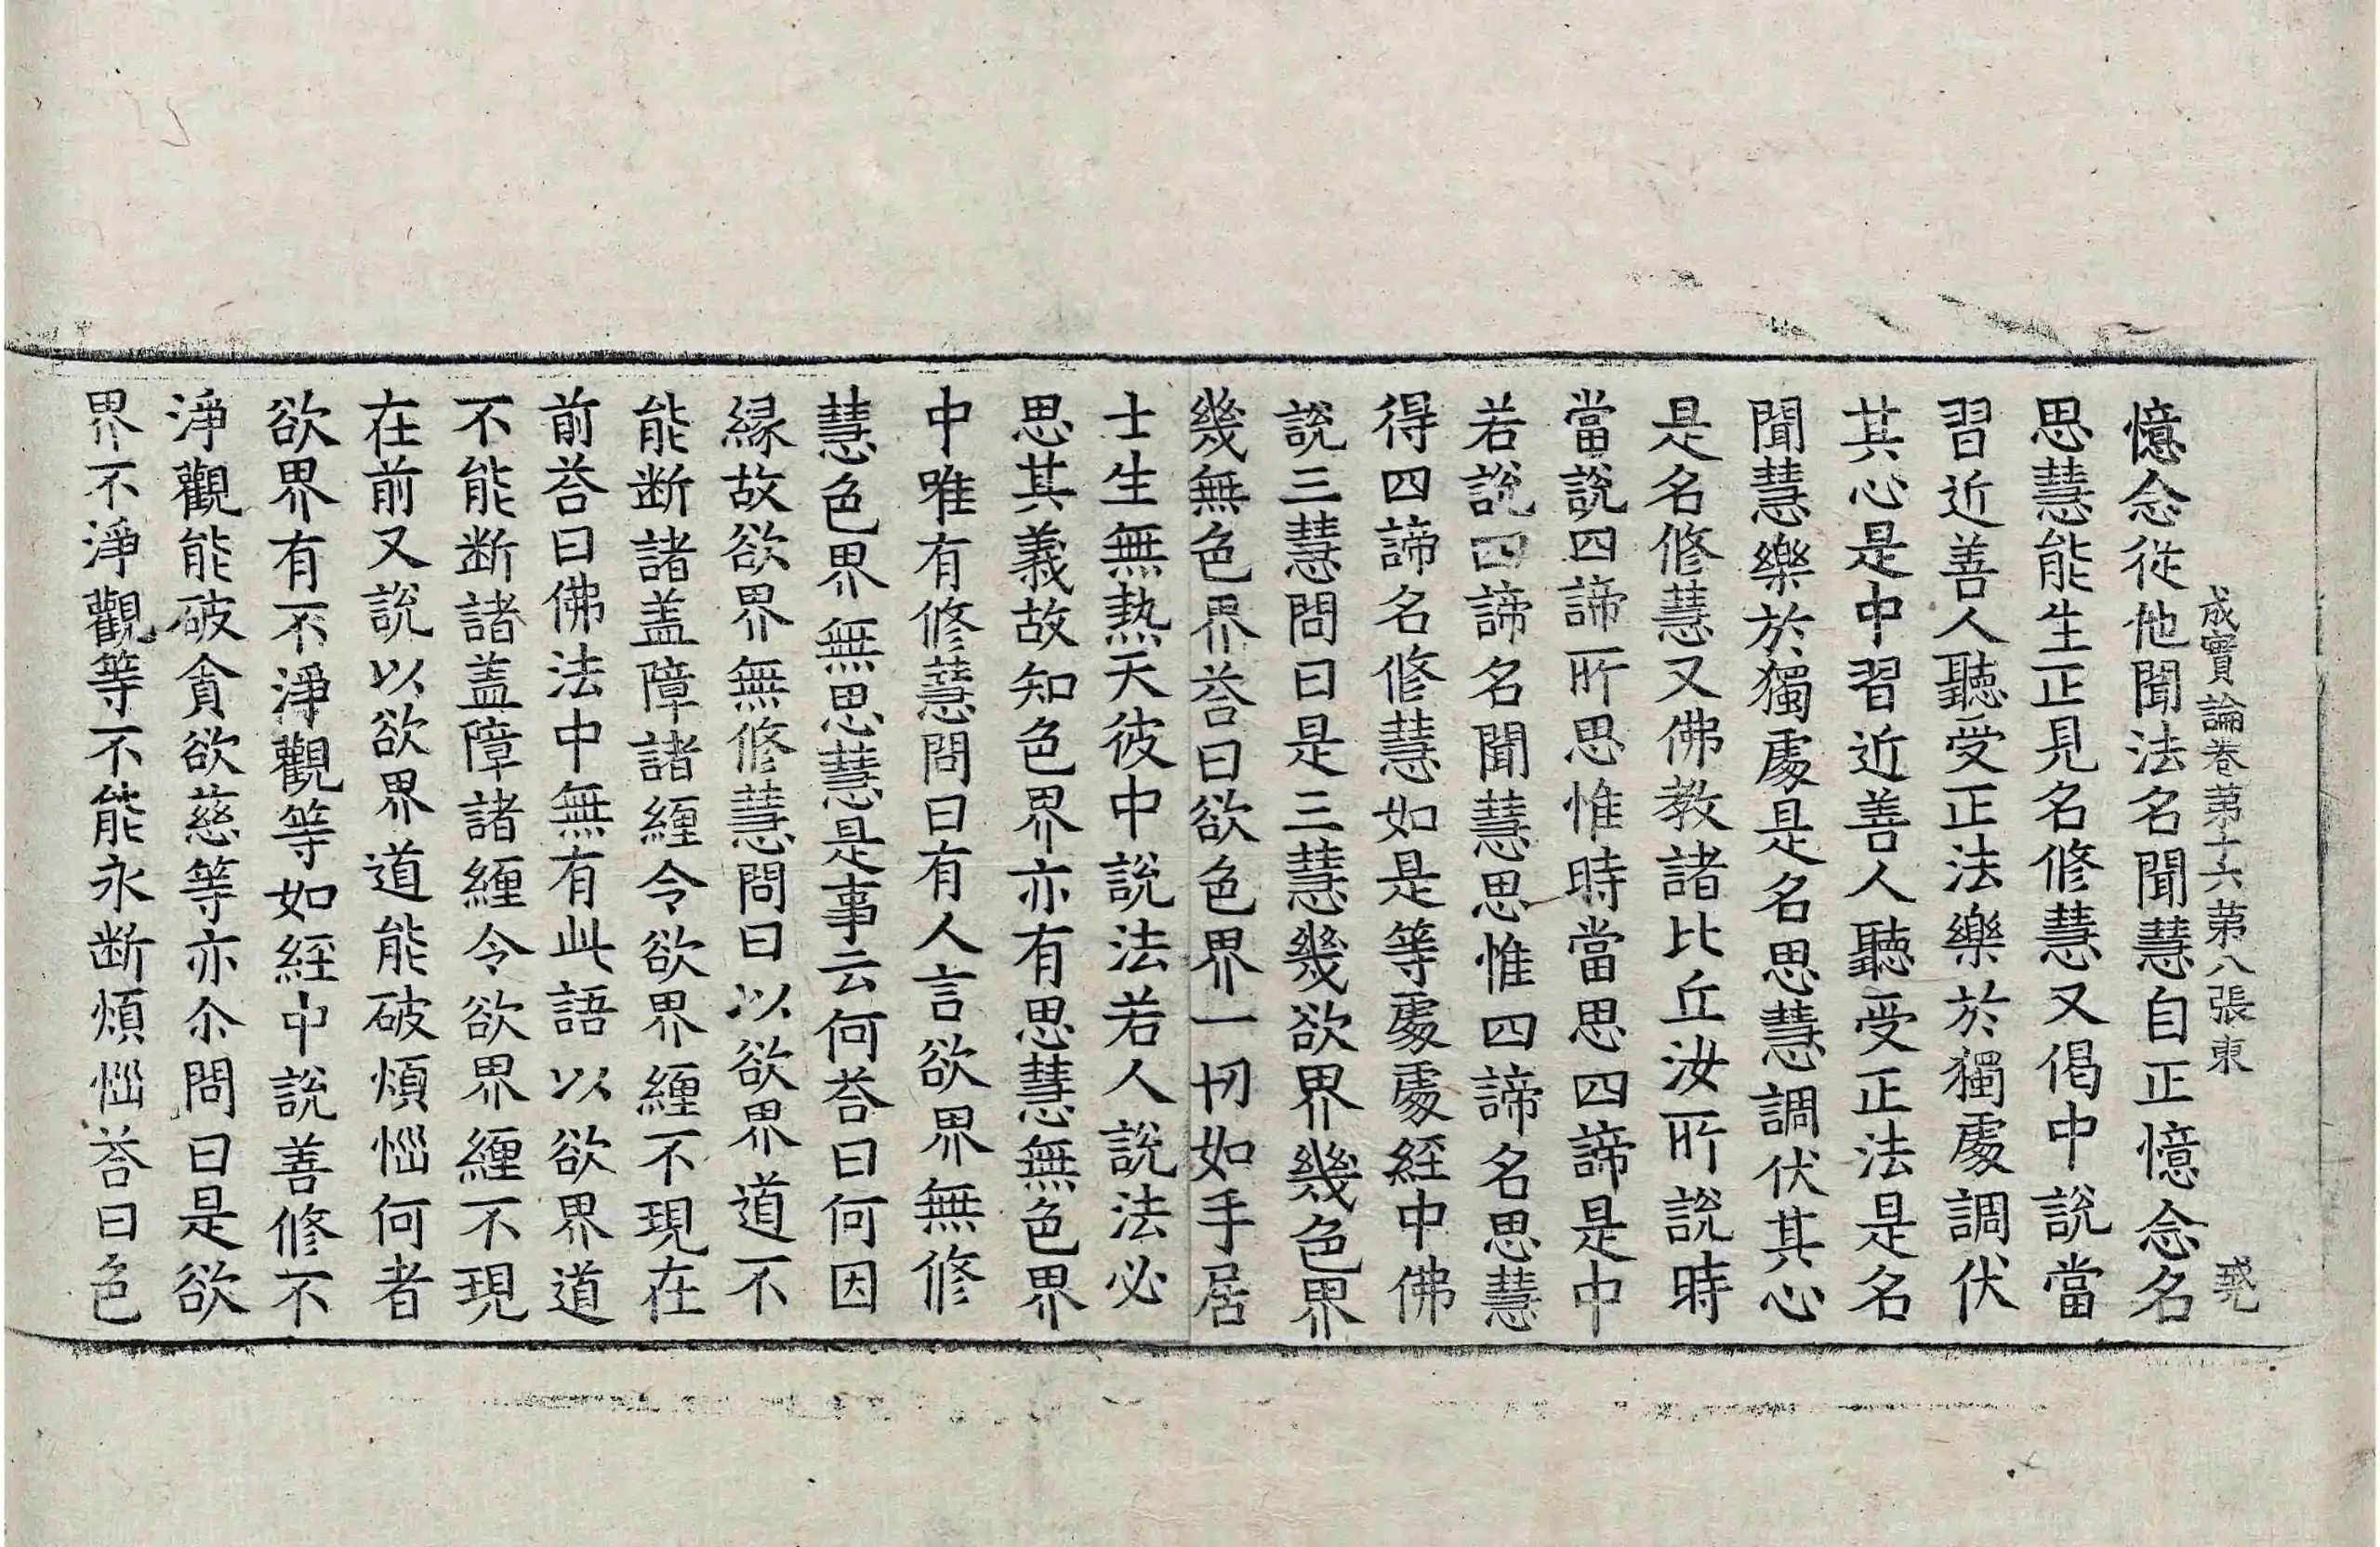 成實論卷第十六第八張東
憶念從他聞法名聞慧自正憶念名
思慧能生正見名修慧又偈中說當
習近善人聽受正法樂於獨處調伏
其心是中習近善人聽受正法是名
聞慧樂於獨處是名思慧調伏其心
是名修慧又佛教諸比丘汝所說時
當說四諦所思惟時當思四諦是中
若說四諦名聞慧思惟四諦名思慧
得四諦名修慧如是等處處經中佛
說三慧問曰是三慧幾欲界幾色界
幾無色界荅曰欲色界一切如手居
士生無熱天彼中說法若人說法必
思其義故知色界亦有思慧無色界
中唯有修慧問曰有人言欲界無修
慧色界無思慧是事云何荅曰何因
緣故欲界無修慧問曰以欲界道不
能断諸盖障諸纏令欲界纏不現在
前荅曰佛法中無有此語以欲界道
不能断諸盖障諸纏令欲界纏不現
在前又說以欲界道能破煩惱何者
欲界有不淨觀等如經中說善修不
淨觀能破貪欲慈等亦尒問曰是欲
界不淨觀等不能永断煩惱荅曰色